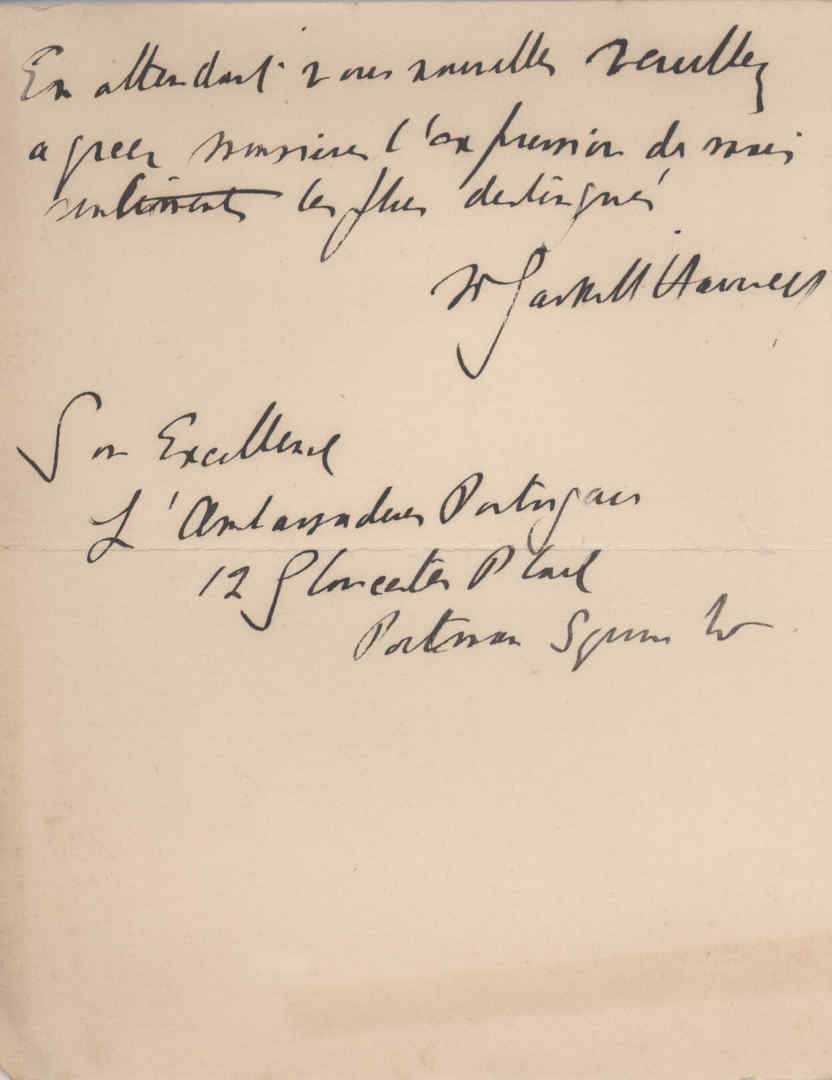 En attendant vous nouvelles veuillez
agreer monsieur l'expression de mes
sentiments les plus destingués
W Gaskell
Son Excellence
L'Ambassadeur Portugais
12 Gloucester Place
Portman Square W